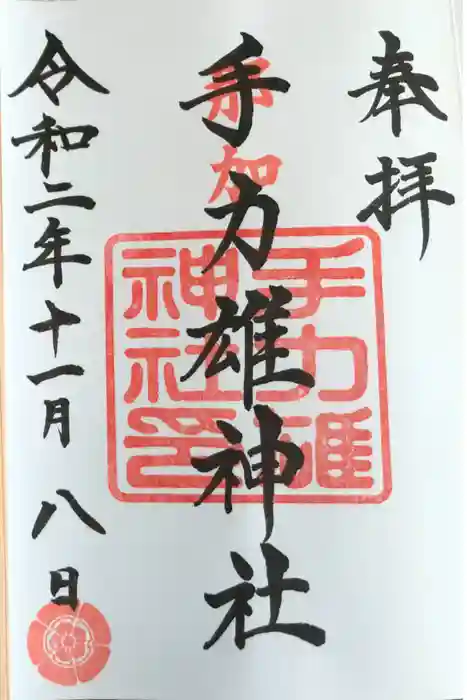 奉拝
那加
手力雄神社
手力雄
神社印
令和二年十一月八日